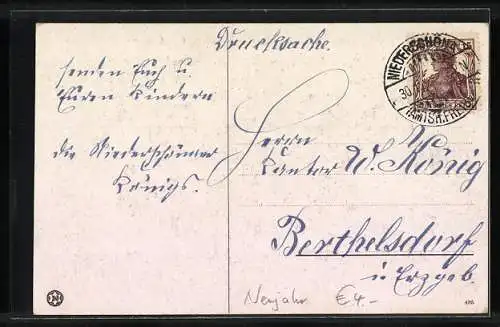 Drucksache.
senden Euch u.
Euren Kindern
die Niederschönaer
Königs.
Herrn
Kantor W. König
Berthelsdorf
i Erzgeb.
NIEDERSCHÖNA
30
(AMTSH. FREIBG.
Neujahr €4.-